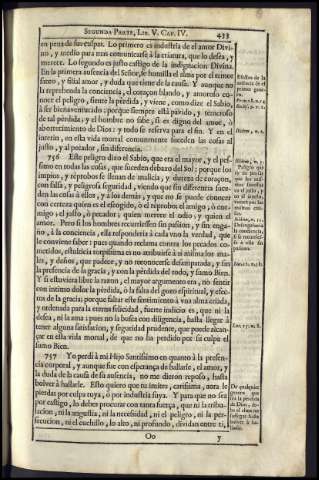 SEGUNDA PARTE, LIB. V. CAP. IV. 433
en pena de sus culpas. Lo primero es industria de el amor Divi-
no, y medio para mas comunicarse à la criatura, que lo desea, y
merece. Lo segundo es justo castigo de la indignacion Divina.
En la primera ausencia del Señor, se humilla el alma por el temor
santo, y filial amor, y duda que tiene de la causa. Y aunque no
la reprehenda la conciencia, el coraçon blando, y amoroso co-
noce el peligro, siente la pérdida, y viene, como dize el Sabio,
à ser bienaventurado: porque siempre està pávido, y temeroso
de tal pérdida; y el hombre no sabe, si es digno del amor, ò
aborrecimiento de Dios: y todo se reserva para el fin. Y en el
interin, en esta vida mortal comunmente suceden las cosas al
justo, y al pecador, sin diferencia.
756 Este peligro dixo el Sabio, que era el mayor, y el pes-
simo en todas las cosas, que suceden debaxo del Sol: porque los
impios, y réprobos se llenan de malicia, y dureza de coraçon,
con falsa, y peligrosa seguridad, viendo que sin diferencia suce-
den las cosas à ellos, y à los demàs, y que no se puede conocer
con certeza quien es el escogido, ò el reprobo; el amigo, ò ene-
migo; el justo, ò pecador; quien merece el odio, y quien el
amor. Pero si los hombres recurriessen sin passion, y sin enga-
ño, à la conciencia, ella responderia à cada vno la verdad, que
le conviene saber: pues quando reclama contra los pecados co-
metidos, estulticia torpissima es no atribuirse à si misma los ma-
les, y daños, que padece, y no reconocerse desamparada, y sin
la presencia de la gracia, y con la pérdida del todo, y sumo Bien.
Y si estuviera libre la razon, el mayor argumento era, no sentir
con intimo dolor la pérdida, ò la falta del gozo espiritual, y efec-
tos de la gracia: porque faltar este sentimiento à vna alma criada,
y ordenada para la eterna felicidad, fuerte indicio es, que ni la
desea, ni la ama; pues no la busca con diligencia, hasta llegar à
tener alguna satisfacion, y seguridad prudente, que puede alcan-
çar en esta vida mortal, de que no ha perdido por su culpa el
sumo Bien.
757 Yo perdi à mi Hijo Santissimo en quanto à la presen-
cia corporal, y aunque fue con esperança de hallarle, el amor, y
la duda de la causa de su ausencia, no me dieron reposo, hasta
bolver à hallarle. Esto quiero que tu imites, carissima, aora le
pierdas por culpa tuya, ò por industria suya. Y para que no sea
por castigo, lo debes procurar con tanta fuerça, que ni la tribu-
lacion, ni la angustia, ni la necesidad, ni el peligro, ni la per-
secucion, ni el cuchillo, lo alto, ni profundo, dividan entre ti,
Oo y